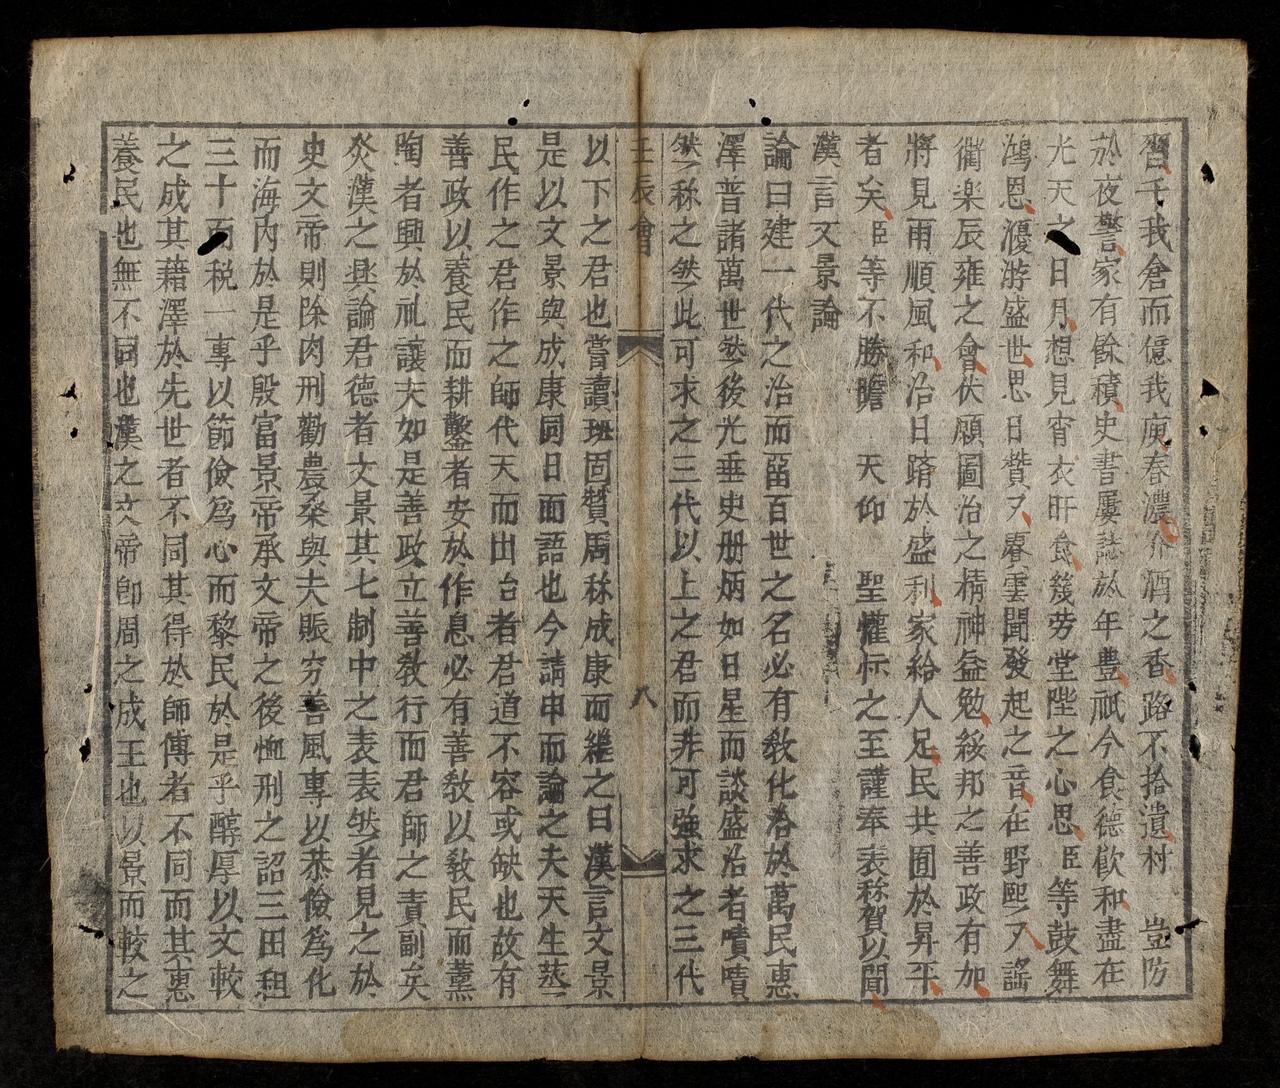 啻千我倉而億我庾春濃介酒之香路不拾遺村　豈防
於夜警家有餘積史書屢誌於年豊祇今食德飮和盡在
光天之日月想見宵衣旰食幾劳堂陛之心思臣等鼓舞
鴻恩優游盛世思日賛又賡雲聞發起之音在野熙又謠
衢楽辰雍之會伏願圖治之精神益勉綏邦之善政有加
將見雨順風和治日躋於盛利家給人足民共囿於昇平
者矣臣等不勝瞻　天仰　聖懽忭之至謹奉表称賀以聞
漢言文景論
論曰建一代之治而畱百世之名必有教化洽於萬民惠
澤普諸萬世然後光垂史册炳如日星而談盛治者嘖嘖
然称之然此可求之三代以上之君而非可強求之三代
壬辰會
八
以下之君也嘗讀班固贊周称成康而継之曰漢言文景
是以文景與成康同日而語也今請申而論之夫天生蒸
民作之君作之師代天而出台者君道不容或缺也故有
善政以養民而耕鑿者安於作息必有善教以教民而薰
陶者興於礼讓夫如是善政立善教行而君師之責副矣
炎漢之興論君德者文景其七制中之表表然者見之於
史文帝則除肉刑勸農桑與夫賑穷善風專以恭儉為化
而海内於是乎殷富景帝承文帝之後恤刑之詔三田租
三十而税一專以節儉為心而黎民於是乎醇厚以文較
之成其藉澤於先世者不同其得於師傅者不同而其惠
養民也無不同也漢之文帝卽周之成王也以景而較之